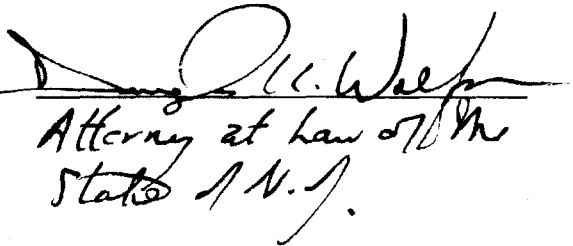 Douglas K. Wolfson
Attorney at Law of the
State of N.J.